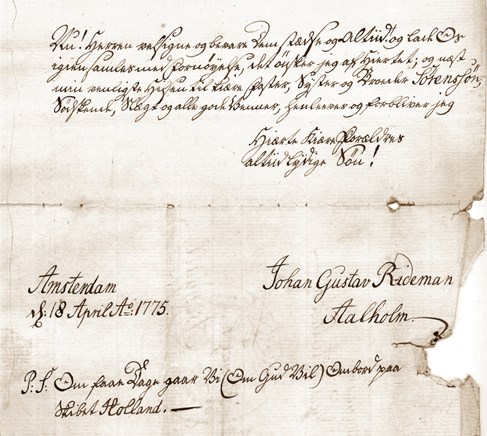 Nu! Herren velsigne og bevare Dem stædse og altiid, og lade Os
igien samles med Fornøyelse, det ønsker jeg af Hiertet; og næst
min venligste Hilsen til kiære Faster, Syster og Broder Sörenssön,
Sødskende, Slegt og alle gode Venner, henlever og forbliver jeg
Hierte Kiære Forældres
altiid lydige Søn!
Amsterdam
d: 18 April Ao. 1775.
Johan Gustav Rideman
Aalholm
P: S: Om faae Dage gaar Vi (Om Gud Vil) Ombord paa
Skibet Holland. —